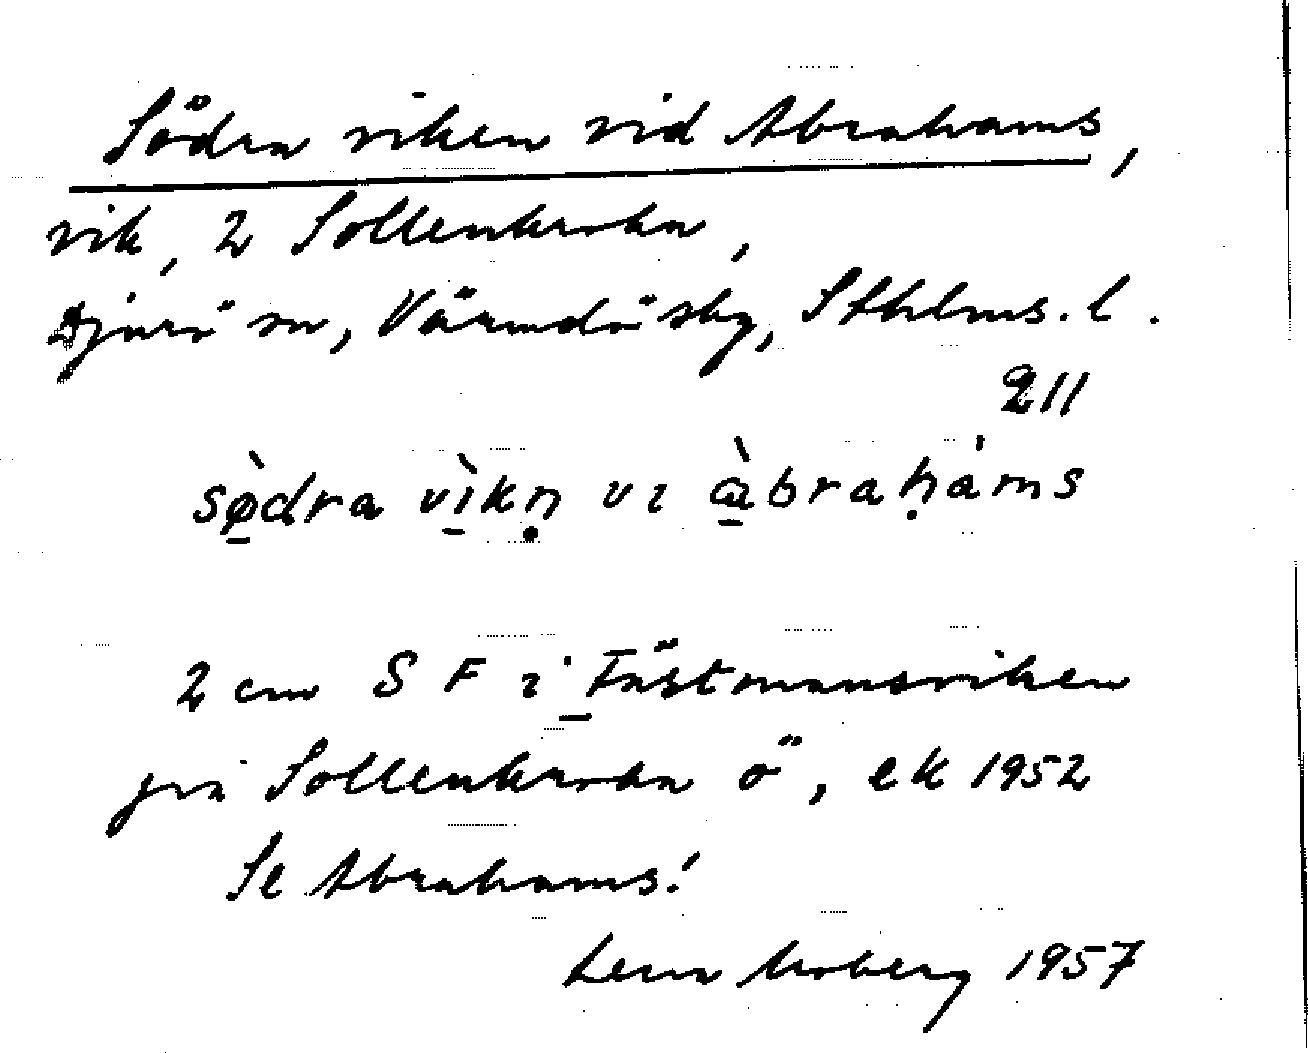 Södra viken vid Abrahams,
vik, 2 Sollenkroka,
Djurö sn, Värmdö sky, Sthlms. l.
211
sø̀dra vìkṇ vı àbraḥáms
2 cm S F i Fästmansviken
på Sollenkroka ö, ek 1952
Se Abrahams!
Lena Moberg 1957